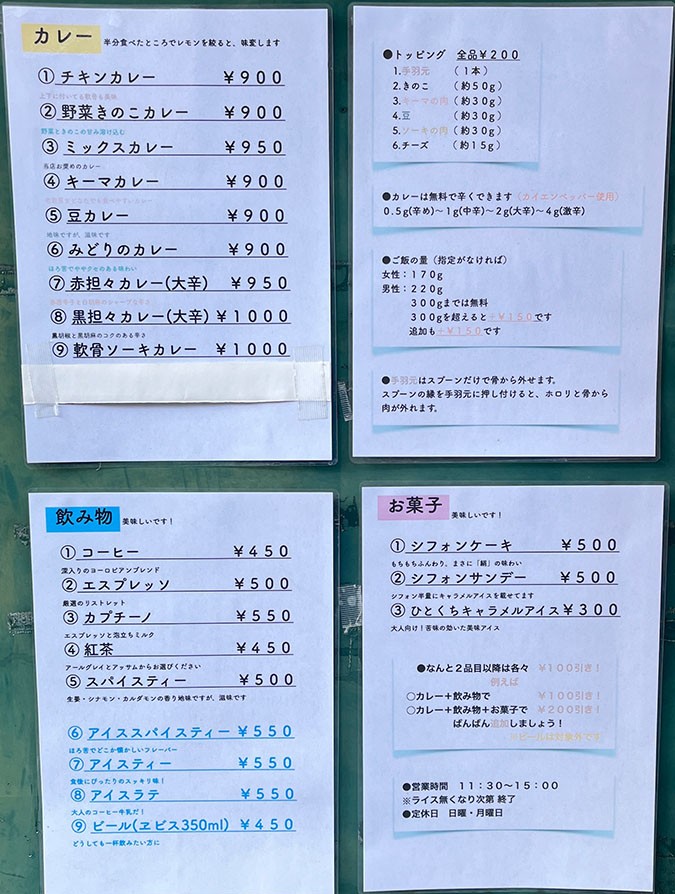 カレー 半分食べたところでレモンを絞ると、味変します
① チキンカレー ￥９００
上下に付いてる軟骨も美味
② 野菜きのこカレー ￥９００
野菜ときのこの甘み溶け込む
③ ミックスカレー ￥９５０
当店お奨めのカレー
④ キーマカレー ￥９００
⑤ 豆カレー ￥９００
地味ですが、滋味です
⑥ みどりのカレー ￥９００
ほろ苦でややクセのある味わい
⑦ 赤担々カレー(大辛) ￥９５０
⑧ 黒担々カレー(大辛) ￥１０００
黒胡椒と黒胡麻のコクのある辛さ
⑨ 軟骨ソーキカレー ￥１０００
●トッピング 全品￥２００
1.手羽元 （１本）
2.きのこ （約５０g）
3.キーマの肉（約３０g）
4.豆 （約３０g）
5.ソーキの肉（約３０g）
6.チーズ （約１５g）
●カレーは無料で辛くできます（カイエンペッパー使用）
０.５g(辛め)～１g(中辛)～２g(大辛)～４g(激辛)
●ご飯の量（指定がなければ）
女性：１７０g
男性：２２０g
３００gまでは無料
３００gを超えると＋￥１５０です
追加も＋￥１５０です
●手羽元はスプーンだけで骨から外せます。
スプーンの縁を手羽元に押し付けると、ホロリと骨から
肉が外れます。
飲み物 美味しいです！
① コーヒー ￥４５０
深入りのヨーロピアンブレンド
② エスプレッソ ￥５００
厳選のリストレット
③ カプチーノ ￥５５０
エスプレッソと泡立ちミルク
④ 紅茶 ￥４５０
アールグレイとアッサムからお選びください
⑤ スパイスティー ￥５００
生姜・シナモン・カルダモンの香り地味ですが、滋味です
⑥ アイススパイスティー ￥５５０
ほろ苦でどこか懐かしいフレーバー
⑦ アイスティー ￥５５０
食後にぴったりのスッキリ味！
⑧ アイスラテ ￥５５０
大人のコーヒー牛乳だ！
⑨ ビール(ヱビス350ml) ￥４５０
どうしても一杯飲みたい方に
お菓子 美味しいです！
① シフォンケーキ ￥５００
もちもちふんわり、まさに「絹」の味わい
② シフォンサンデー ￥５００
シフォン半量にキャラメルアイスを載せてます
③ ひとくちキャラメルアイス ￥３００
大人向け！苦味の効いた美味アイス
●なんと２品目以降は各々 ￥１００引き！
例えば
○カレー＋飲み物で ￥１００引き！
○カレー＋飲み物＋お菓子で ￥２００引き！
ばんばん追加しましょう！
※ビールは対象外です
●営業時間 １１：３０～１５：００
※ライス無くなり次第 終了
●定休日 日曜・月曜日